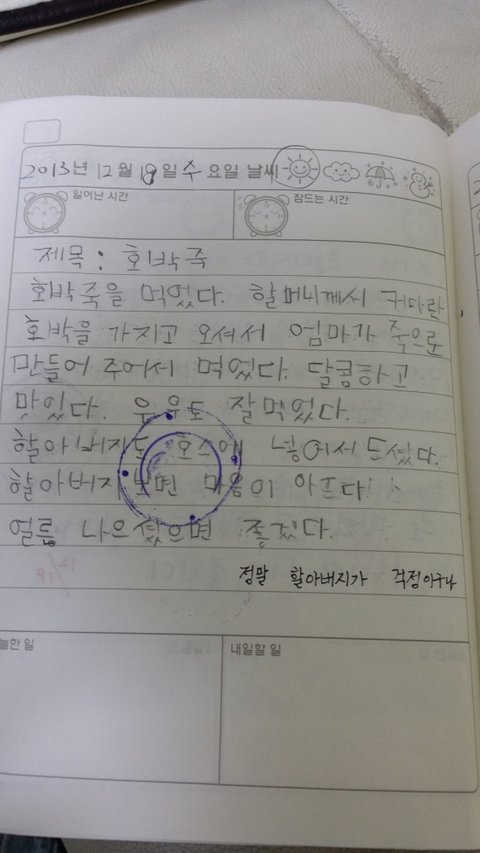 2013년 12월 18일 수요일 날씨
일어난 시간 잠드는 시간
제목 : 호박죽
호박죽을 먹었다. 할머니께서 커다란
호박을 가지고 오셔서 엄마가 죽으로
만들어 주어서 먹었다. 달콤하고
맛있다. 도 잘 먹었다.
할아버지도 호스에 넣어서 드셨다.
할아버지 보면 마음이 아프다
얼른 나으셨으면 좋겠다.
정말 할아버지가 걱정이구나
12/18
늘한 일 내일할 일